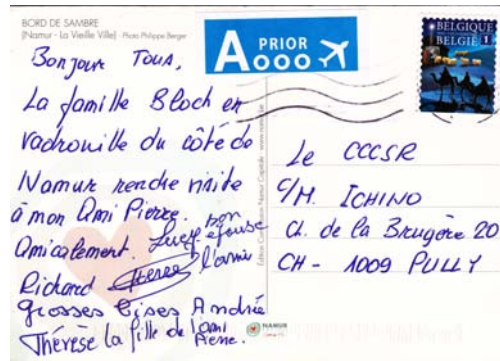 BORD DE SAMBRE
(Namur - La Vieille Ville) - Photo Philippe Berger
A PRIOR
BELGIQUE
BELGIË 1
Bonjour Tous,
La famille Bloch en
vadrouille du côté de
Namur rendre visite
à mon Ami Pierre.
Amicalement. Lucie son épouse
Richard Pierre l'ami
Grosses bises Andrée
Thérèse la fille de l'ami
Pierre.
Le CCCSR
C/M. ICHINO
Ch. de la Bruyère 20
CH - 1009 PULLY
NAMUR